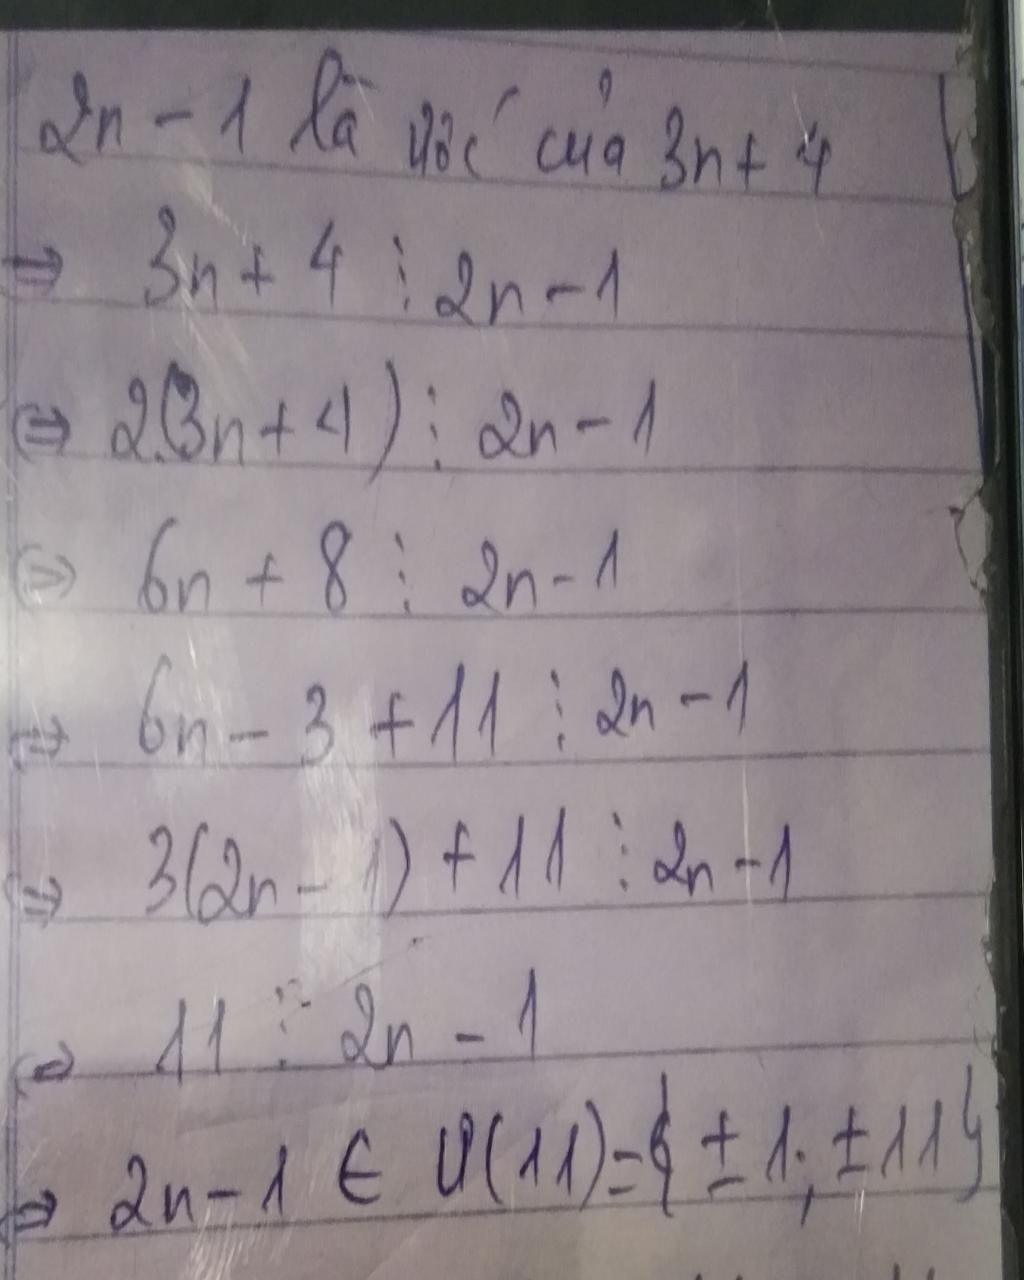 2n - 1 là ước của 3n + 4
⇒ 3n + 4 ⋮ 2n - 1
⇒ 2.(3n + 4) ⋮ 2n - 1
⇒ 6n + 8 ⋮ 2n - 1
⇒ 6n - 3 + 11 ⋮ 2n - 1
⇒ 3(2n - 1) + 11 ⋮ 2n - 1
⇒ 11 ⋮ 2n - 1
⇒ 2n - 1 ∈ Ư(11) = { ± 1; ± 11 }